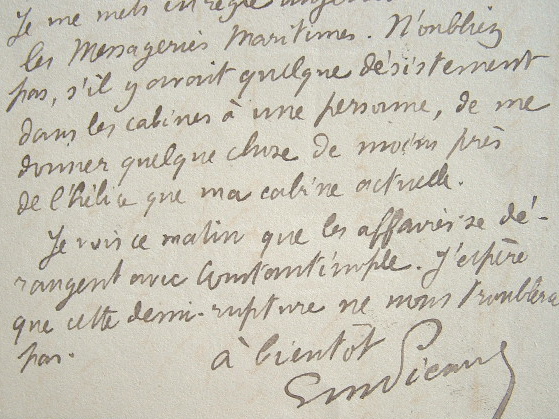 Je me mets en règle
les Messageries Maritimes. N'oubliez
pas, s'il y avait quelque désistement
dans les cabines à une personne, de me
donner quelque chose de moins près
de l'hélice que ma cabine actuelle.
Je vois ce matin que les affaires se dé-
rangent avec Constantinople. J'espère
que cette demi-rupture ne nous troublera
pas.
à bientôt
Em Picard